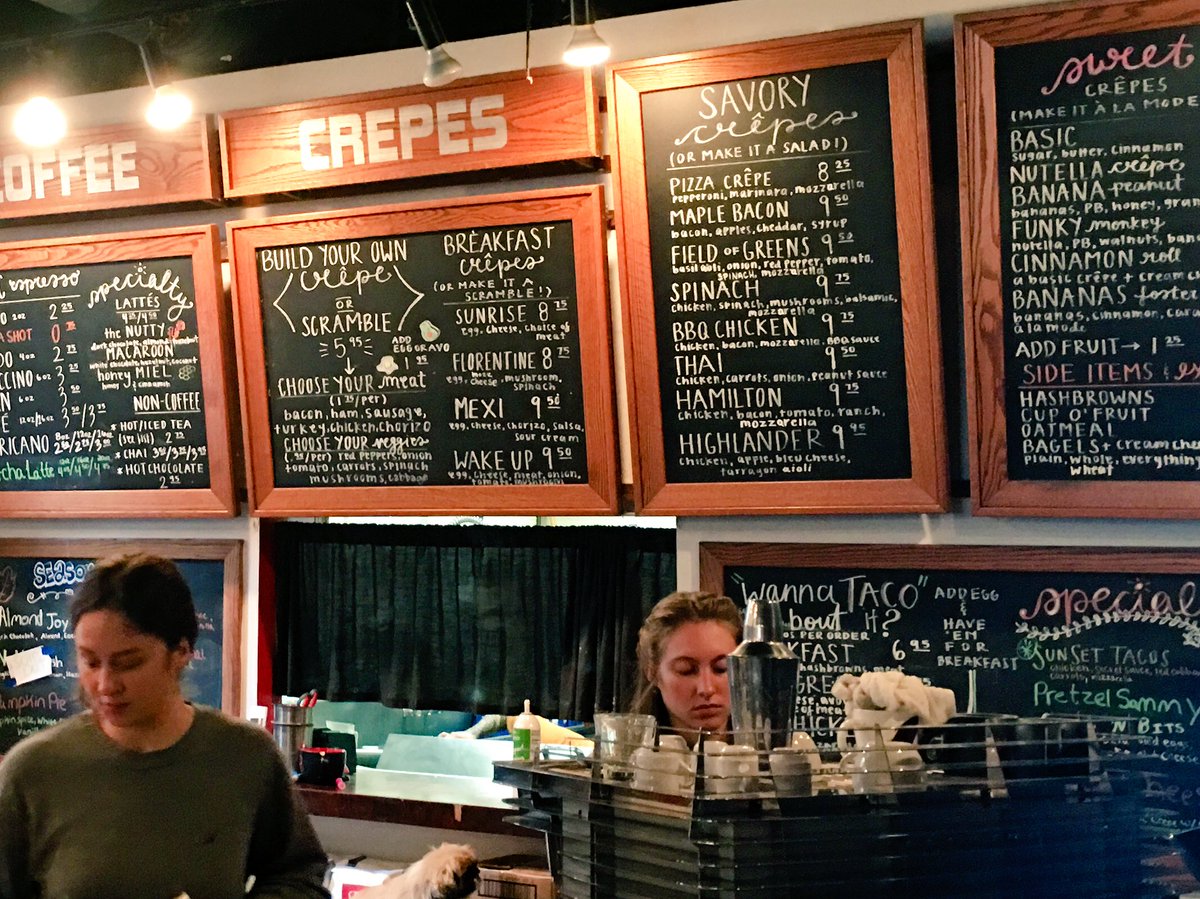 COFFEE
CREPES
espresso
2oz 2 25
A SHOT 0 75
4oz 2 75
CCINO 6oz 3
12oz/16oz 3 50/3 75
RICANO
specialty
LATTÉS
the NUTTY
dark chocolate, almond, hazelnut
MACAROON
white chocolate, hazelnut, coconut
honey MIEL
honey & cinnamon
NON-COFFEE
* HOT/ICED TEA
2 75
* CHAI
* HOT CHOCOLATE
2 95
BUILD YOUR OWN
crêpe
OR
SCRAMBLE
5.95
ADD
EGG OR AVO
1 95
CHOOSE YOUR meat
(1.75/per)
bacon, ham, sausage,
turkey, chicken, chorizo
CHOOSE YOUR veggies
red peppers, onion
tomato, carrots, spinach
mushrooms, cabbage
BREAKFAST
crêpes
(OR MAKE IT A
SCRAMBLE!)
SUNRISE 8 75
egg, cheese, choice of
meat
FLORENTINE 8 75
egg, cheese, mushroom,
spinach
MEXI 9 50
egg, cheese, chorizo, salsa,
sour cream
WAKE UP 9 50
egg, cheese, meat, onion,
tomato, mushroom
SAVORY
crêpes
(OR MAKE IT A SALAD!)
PIZZA CRÊPE 8 25
pepperoni, marinara, mozzarella
MAPLE BACON 9 50
bacon, apples, cheddar, syrup
FIELD OF GREENS 9 50
basil aoli, onion, red pepper, tomato,
spinach, mozzarella
SPINACH 9 50
chicken, spinach, mushrooms, balsamic,
mozzarella
BBQ CHICKEN 9 75
chicken, bacon, mozzarella, BBQ sauce
THAI 9 50
chicken, carrots, onion, peanut sauce
HAMILTON 9 75
chicken, bacon, tomato, ranch,
mozzarella
HIGHLANDER 9 95
chicken, apple, bleu cheese,
tarragon aioli
sweet
CRÊPES
(MAKE IT À LA MODE
BASIC
sugar, butter, cinnamon
NUTELLA crêpe
BANANA peanut
bananas, PB, honey, gran
FUNKY monkey
nutella, PB, walnuts, ban
CINNAMON roll
a basic crêpe + cream
BANANAS foster
bananas, cinnamon, car
à la mode
ADD FRUIT → 1 25
SIDE ITEMS
HASHBROWNS
CUP O' FRUIT
OATMEAL
BAGELS + cream che
plain, whole, everything
wheat
SEASON
Almond Joy
Pumpkin Pie
"WANNA TACO
bout it?"
PER ORDER 6 95
hashbrowns, meat
ADD EGG
&
HAVE
'EM
FOR
BREAKFAST
special
SUNSET TACOS
carrots, mozzarella
Pretzel Sammy
N BITS